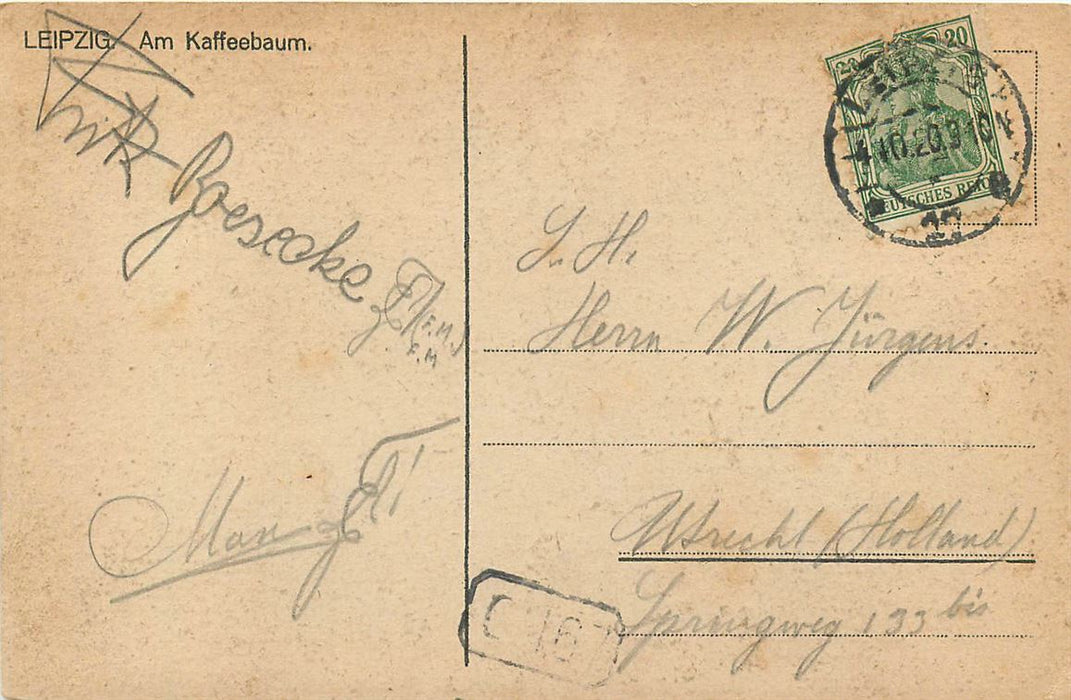 LEIPZIG. Am Kaffeebaum.
Boesecke
F. M.
F. M
Max
20 20
DEUTSCHES REICH
LEIPZIG
4.10.20.9-10 V
S. H.
Herrn W. Jürgens.
Utrecht (Holland)
Springweg 133 bis